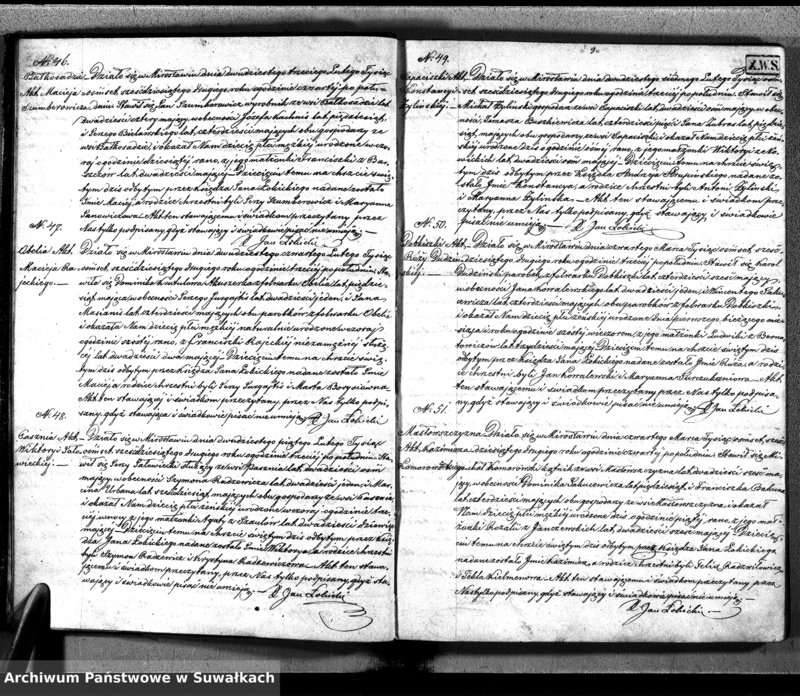 No. 46.
Bałkosadzie Działo się w Mirosławiu dnia dwudziestego trzeciego Lutego Tysiąc
Akt Macieja ośmset sześćdziesiątego drugiego roku o godzinie czwartej po połu-
Szumborowicza. dniu. Stawił się Jan Szumborowicz wyrobnik ze wsi Bałkosadzie lat
dwadzieścia cztery mający, w obecności Józefa lat pięćdziesiąt,
i Jerzego Bielańskiego lat czterdzieści mających obu gospodarzy ze
wsi Bałkosadzie i okazał Nam dziecię płci męzkiej urodzone wczo-
raj o godzinie dziesiątej rano, z jego małżonki Franciszki z
lat dwadzieścia mającej. Dziecięciu temu na chrzcie świę-
tym dziś odbytym przez Księdza Jana Łobickiego nadane zostało
Imie Maciej, a rodzice chrzestni byli Jerzy Szumborowicz i Maryanna
Janowiczowa. Akt ten stawającemu i świadkom przeczytany przez
Nas tylko podpisany, gdyż stawający i świadkowie pisać nie umieją.
X Jan Łobicki
No. 47.
Obelia Akt Działo się w Mirosławiu dnia dwudziestego czwartego Lutego Tysiąc
Macieja Ra- ośmset sześćdziesiątego drugiego roku o godzinie trzeciej po południu. Sta-
jeckiego. wiła się Dominika Akuszerka z folwarku Obelia lat pięćdzie-
siąt mająca, w obecności Jerzego lat dwadzieścia jeden, i Jana
lat czterdzieści mających, obu parobków z folwarku Obelii
i okazała Nam dziecię płci męzkiej naturalnie urodzone wczoraj
o godzinie szóstej rano, z Franciszki Rajeckiej niezamężnej służą-
cej lat dwadzieścia dwa mającej. Dziecięciu temu na chrzcie świę-
tym dziś odbytym przez Księdza Jana Łobickiego nadane zostało Imie
Maciej a rodzice chrzestni byli Jerzy i Marta Borysiówna
Akt ten stawającej i świadkom przeczytany, przez Nas tylko podpi-
sany, gdyż stawająca i świadkowie pisać nie umieją. X Jan Łobicki
No. 48.
Akt Działo się w Mirosławiu dnia dwudziestego piątego Lutego Tysiąc
Wiktoryi Sale- ośmset sześćdziesiątego drugiego roku o godzinie trzeciej po południu. Sta-
wieckiej wił się Jerzy Salewiecki służący ze wsi lat dwadzieścia ośm
mający, w obecności Szymona Radzewicza lat dwadzieścia jeden, i Mar-
cina Urbana lat sześćdziesiąt mających obu gospodarzy ze wsi
i okazał Nam dziecię płci żeńskiej urodzone wczoraj o godzinie trze-
ciej w nocy, z jego małżonki Agaty z lat dwadzieścia dziewięć
mającej. Dziecięciu temu na chrzcie świętym dziś odbytym przez Księ-
dza Jana Łobickiego nadane zostało Imie Wiktorya, a rodzice chrzestni
byli Szymon Radzewicz i Krystyna Radzewiczowa. Akt ten stawa-
jącemu i świadkom przeczytany, przez Nas tylko podpisany, gdyż sta-
wający i świadkowie pisać nie umieją. X Jan Łobicki
9.
A.W.S.
No. 49.
Łopaciszki Akt Działo się w Mirosławiu dnia dwudziestego siódmego Lutego Tysiąc ośm-
Konstancyi set sześćdziesiątego drugiego roku o godzinie trzeciej po południu. Stawił się
Żylińskiej Michał Żyliński gospodarz ze wsi Łopaciszki lat dwadzieścia ośm mający, w obe-
cności Tomasza lat czterdzieści pięć i Jana lat pięćdzie-
siąt, mających obu gospodarzy ze wsi Łopaciszki, i okazał Nam dziecię płci żeń-
skiej urodzone dziś o godzinie ósmej rano, z jego małżonki Wiktoryi z
lat dwadzieścia ośm mającej. Dziecięciu temu na chrzcie świę-
tym dziś odbytym przez Księdza Andrzeja Słupińskiego nadane zo-
stało Imie Konstancya, a rodzice chrzestni byli Antoni Żyliński
i Maryanna Żylińska. Akt ten stawającemu i świadkom prze-
czytany, przez Nas tylko podpisany, gdyż stawający i świadkowie
pisać nie umieją. X Jan Łobicki
No. 50.
Dubkiszki Akt Działo się w Mirosławiu dnia czwartego Marca Tysiąc ośmset sześć-
Róży dziesiątego drugiego roku o godzinie trzeciej po południu. Stawił się Karol
parobek z folwarku Dubkiszki lat czterdzieści sześć mający
w obecności Jana Kowalewskiego lat dwadzieścia jeden, i Wincentego
lat czterdzieści mających obu parobków z folwarku Dubkiszki
i okazał Nam dziecię płci żeńskiej urodzone dnia pierwszego bieżącego mie-
siąca i roku o godzinie szóstej wieczorem, z jego małżonki Ludwiki z
lat trzydzieści mającej. Dziecięciu temu na chrzcie świętym dziś
odbytym przez Księdza Jana Łobickiego nadane zostało Imie Róża, a rodzi-
ce chrzestni byli Jan Kowalewski i Maryanna Akt
ten stawającemu i świadkom przeczytany przez Nas tylko podpisa-
ny, gdyż stawający i świadkowie pisać nie umieją. X Jan Łobicki
No. 51.
Działo się w Mirosławiu dnia czwartego Marca Tysiąc ośmset sześć-
Akt Kazimierza dziesiątego drugiego roku o godzinie czwartej po południu. Stawił się Mi-
Komorowskiego chał Komorowski kątnik ze wsi lat dwadzieścia sześć ma-
jący, w obecności Dominika lat pięćdziesiąt, i Franciszka
lat czterdzieści mających obu gospodarzy ze wsi i okazał
Nam dziecię płci męzkiej urodzone dziś o godzinie piątej rano, z jego mał-
żonki Rozalii z lat dwadzieścia sześć mającej. Dziecię-
ciu temu na chrzcie świętym dziś odbytym przez Księdza Jana Łobickiego
nadane zostało Imie Kazimierz, a rodzice chrzestni byli Felix
i Tekla Akt ten stawającemu i świadkom przeczytany przez
Nas tylko podpisany, gdyż stawający i świadkowie pisać nie umieją.
X Jan Łobicki
Archiwum Państwowe w Suwałkach